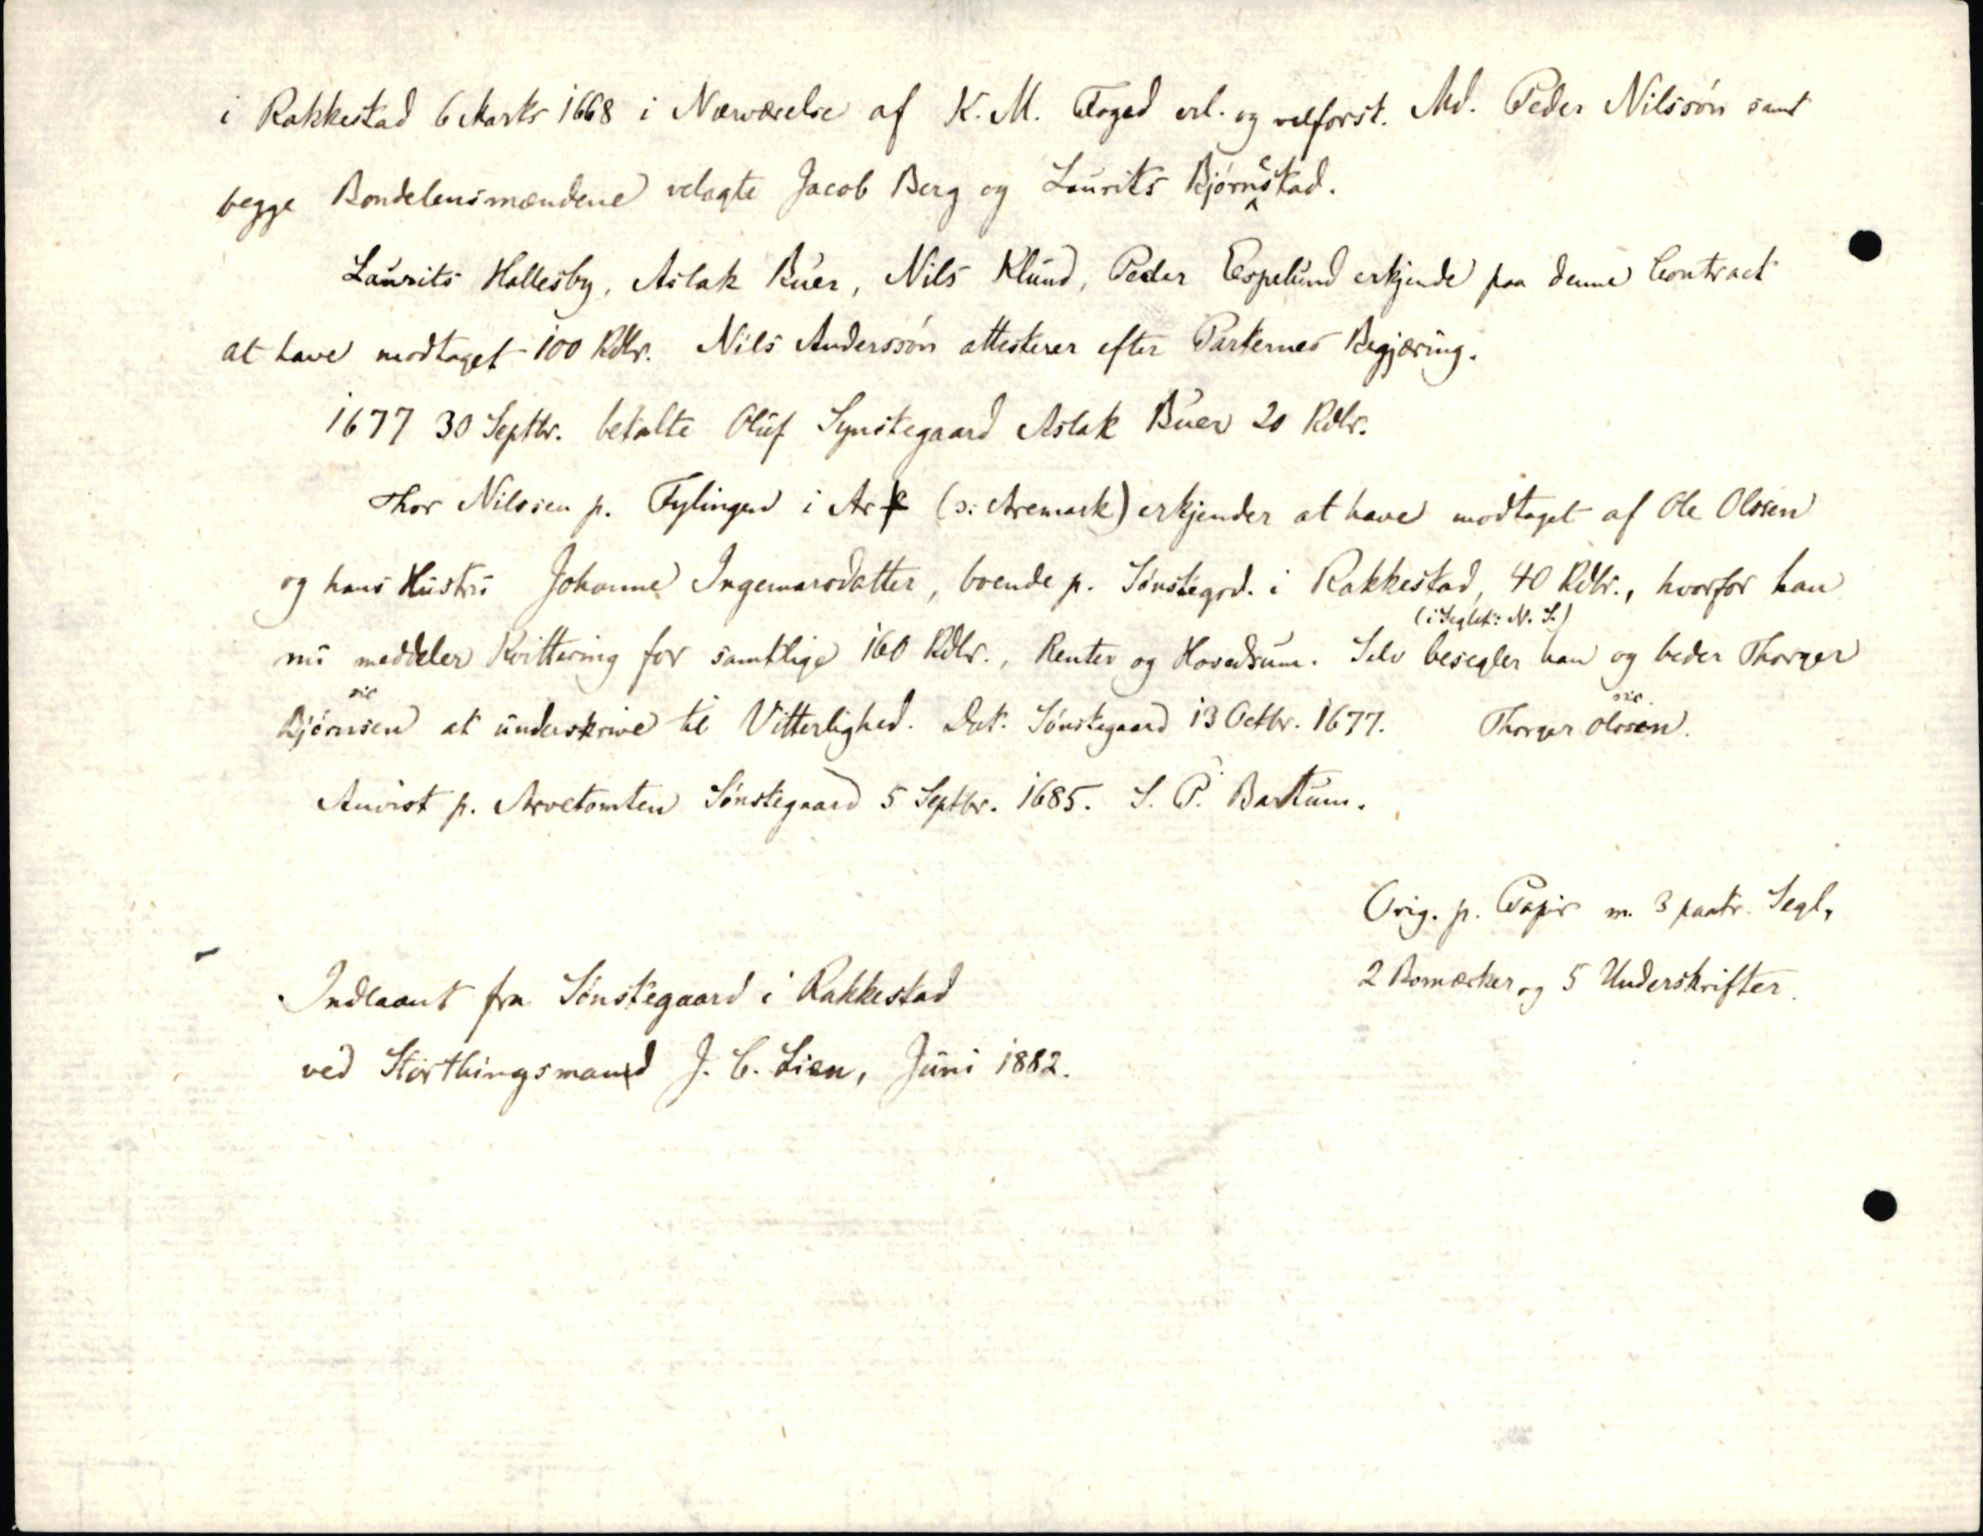 i Rakkestad 6 Marts 1668 i Nærværelse af K. M. Foged erl. og velforst. Md. Peder Nilssøn samt
begge Bondelensmændene velagte Jacob Berg og Laurits Bjørnestad.
Laurits Hallesby, Aslak Buer, Nils Klund, Peder Espelund erkjende paa denne Contract
at have modtaget 100 Rdlr. Nils Anderssøn attesterer efter Parternes Begjæring.
1677 30 Septbr. betalte Oluf Synstegaard Aslak Buer 20 Rdlr.
Thor Nilssen p. Fylingen i Ark (ɔ: Aremark) erkjender at have modtaget af Ole Olssen
og hans Hustru Johanne Ingemarsdatter, boende p. Sønstegrd. i Rakkestad, 40 Rdlr., hvorfor han
(i Seglet: N. S.)
nu meddeler Kvittering for samtlige 160 Rdlr., Renter og Hovedsum. Selv besegler han og beder Thorger
sic sic
Bjørnsen at underskrive til Vitterlighed. Dat. Sønstegaard 13 Octbr. 1677. Thorger Olssen.
Anvist p. Arvetomten Sønstegaard 5 Septbr. 1685. S. P. Bartum.
Orig. p. Papir m. 3 paatr. Segl,
2 Bomærker og 5 Underskrifter.
Indlaant fra Sønstegaard i Rakkestad
ved Storthingsmand J. C. Lien, Juni 1882.